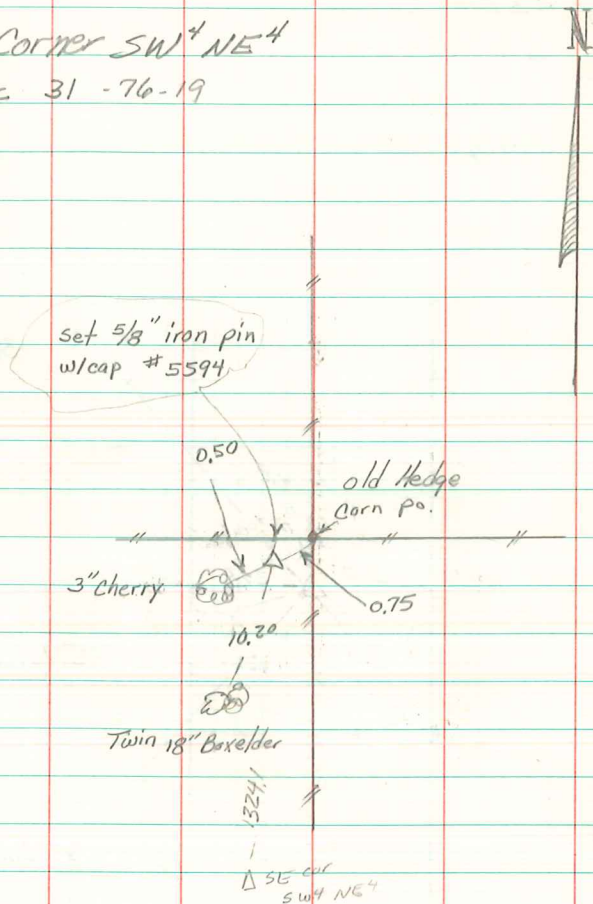 Corner SW⁴ NE⁴
N
31 -76-19
set 5/8" iron pin
w/cap #5594
0.50
old Hedge
Corn Po.
3"Cherry
0.75
10.20
Twin 18" Boxelder
1324.1
Δ SE cor
SW4 NE⁴